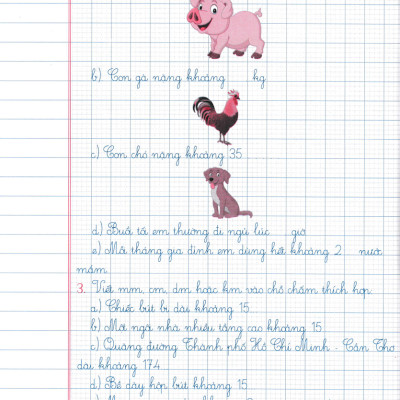 b) Con gà nặng khoảng kg
c) Con chó nặng khoảng 35
d) Buổi tối em thường đi ngủ lúc giờ
e) Mỗi tháng gia đình em dùng hết khoảng 2 nước
mắm.
3. Viết mm, cm, dm hoặc km vào chỗ chấm thích hợp.
a) Chiếc bút bi dài khoảng 15
b) Một ngôi nhà nhiều tầng cao khoảng 15
c) Quãng đường Thành phố Hồ Chí Minh - Cần Thơ
dài khoảng 174
d) Bề dày hộp bút khoảng 15